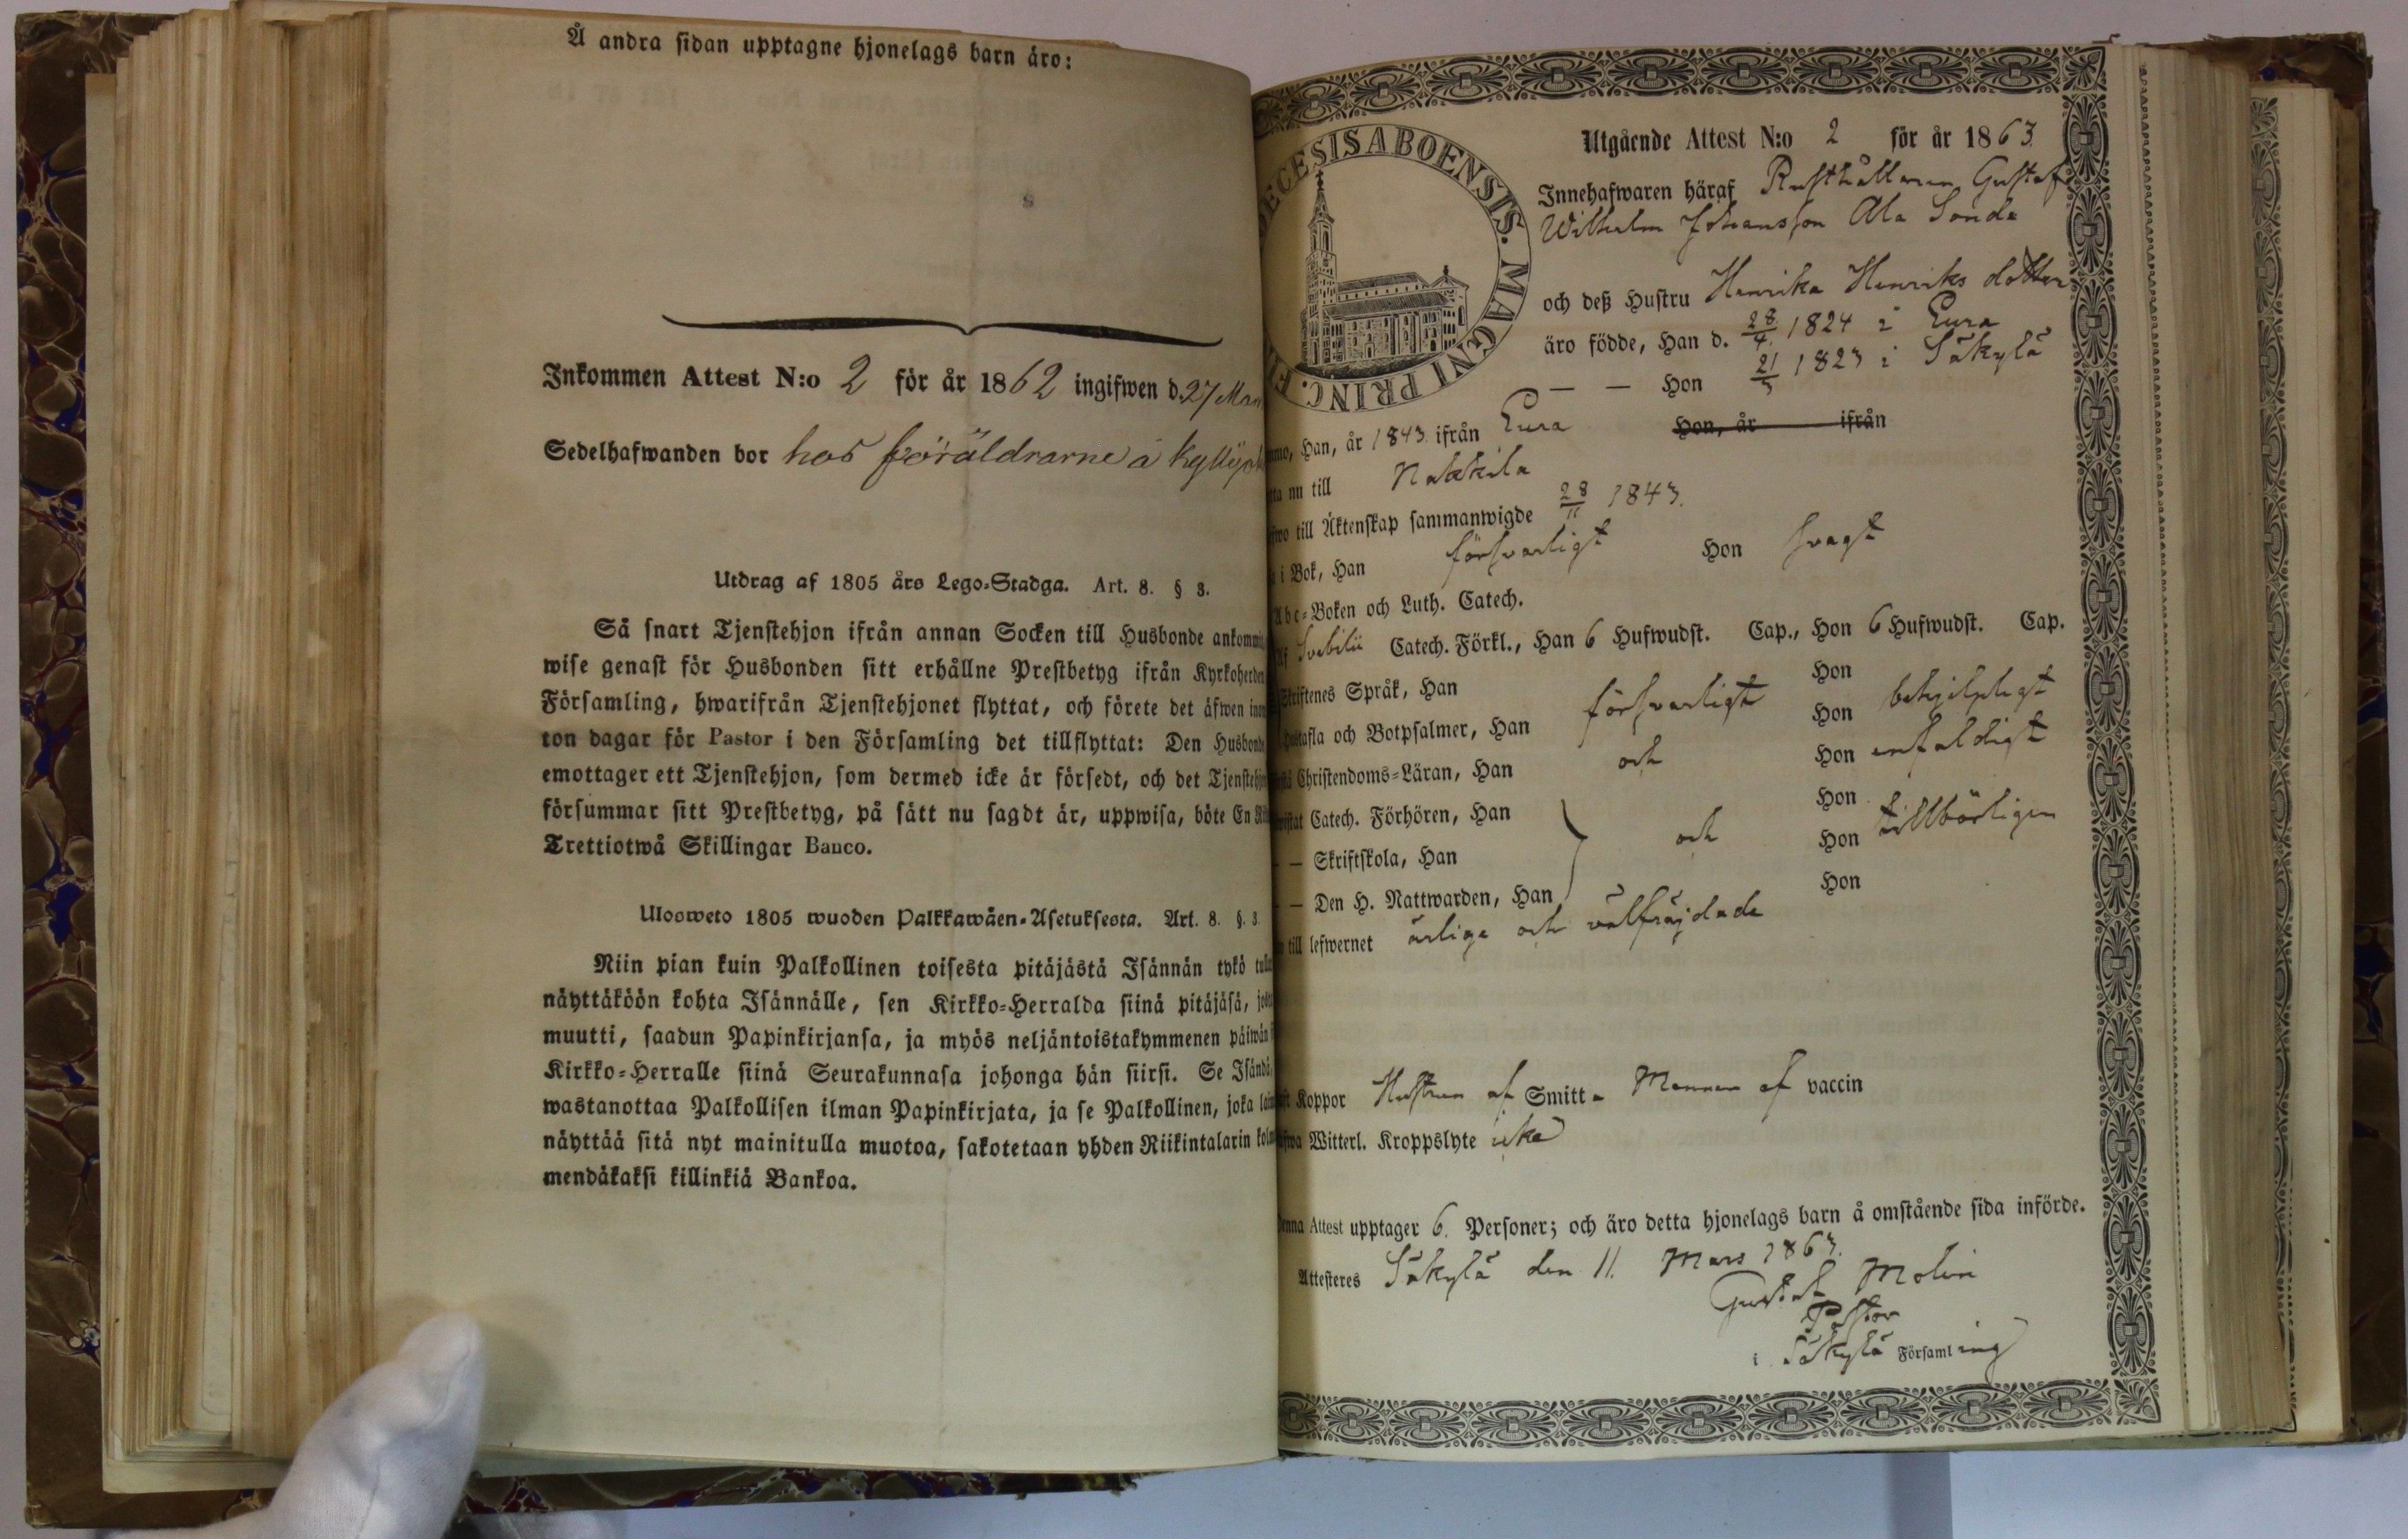 Å andra sidan upptagne hjonelags barn äro:
Inkommen Attest N:o 2 för år 1862 ingifwen d. 27 Mars
Sedelhafwanden bor hos föräldrarne å
Utdrag af 1805 års Lego-Stadga. Art. 8. § 3.
Så snart Tjenstehjon ifrån annan Socken till Husbonde
wise genast för Husbonden sitt erhållne Prestbetyg ifrån Kyrkoherden
Församling, hwarifrån Tjenstehjonet flyttat, och förete det äfwen
ton dagar för Pastor i den Församling det tillflyttat: Den Husbonde
emottager ett Tjenstehjon, som dermed icke är försedt, och det
försummar sitt Prestbetyg, på sätt nu sagdt är, uppwisa, böte En
Trettiotwå Skillingar Banco.
Ulosweto 1805 wuoden Palkkawäen-Asetuksesta. Art. 8. §. 3
Niin pian kuin Palkollinen toisesta pitäjästä Isännän tykö
näyttäköön kohta Isännälle, sen Kirkko-Herralda siinä pitäjäsä,
muutti, saadun Papinkirjansa, ja myös neljäntoistakymmenen päiwän
Kirkko-Herralle siinä Seurakunnasa johonga hän siirsi. Se Isändä,
wastanottaa Palkollisen ilman Papinkirjata, ja se Palkollinen, joka
näyttää sitä nyt mainitulla muotoa, sakotetaan yhden Riikintalarin
mendäkaksi killinkiä Bankoa.
ECESIS ABOENSIS. MAGNI PRINC. FI
Utgående Attest N:o 2 för år 1863.
Innehafwaren häraf Rusthållaren Gustaf
Wilhelm Johansson Ala Sonda
och deß Hustru Henrika Henriks dotter
äro födde, Han d. 28/4. 1824 i Eura
— — Hon 21/3 1823 i Säkylä
Han, år 1843. ifrån Eura Hon, år ifrån
nu till Nakkila
till Äktenskap sammanwigde 28/11 1843.
i Bok, Han försvarligt Hon svagt
Abc-Boken och Luth. Catech.
Svebilii Catech. Förkl., Han 6 Hufwudst. Cap., Hon 6 Hufwudst. Cap.
Skriftenes Språk, Han Hon
Hustafla och Botpsalmer, Han försvarligt Hon behjelpligt
Christendoms-Läran, Han och Hon enfaldigt
Catech. Förhören, Han Hon
— Skriftskola, Han och Hon tillbörligen
— Den H. Nattwarden, Han Hon
till lefwernet ärliga och välfräjdade
Koppor Hustrun af Smitt - Mannen af vaccin
Witterl. Kroppslyte icke
Denna Attest upptager 6. Personer; och äro detta hjonelags barn å omstående sida införde.
Attesteres Säkylä den 11. Mars 1863.
Gustaf Molin
Pastor
i Säkylä Församling